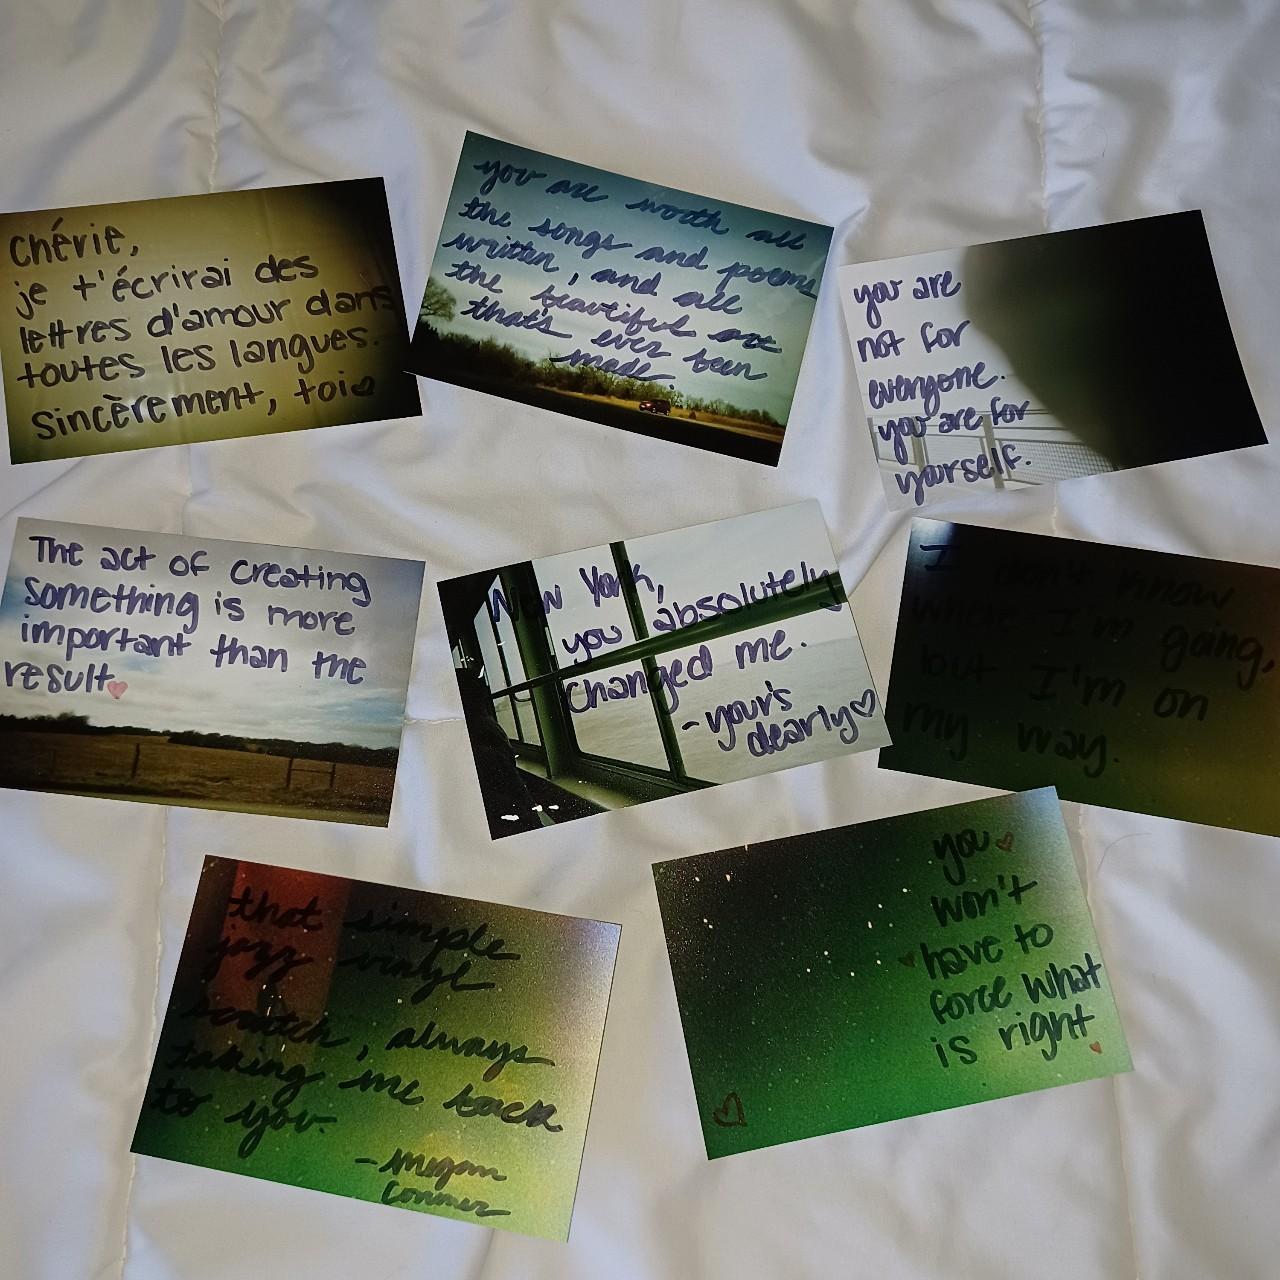 chérie,
je t'écrirai des
lettres d'amour dans
toutes les langues.
sincèrement, toi
you are worth all
the songs and poems
written, and all
the beautiful art
that's ever been
made.
you are
not for
everyone.
you are for
yourself.
The act of creating
something is more
important than the
result.
New York,
you absolutely
changed me.
-yours
dearly
I don't know
where I'm going,
but I'm on
my way.
that simple
jazz vinyl
scratch, always
taking me back
to you.
-Megan
Conner
you
won't
have to
force what
is right